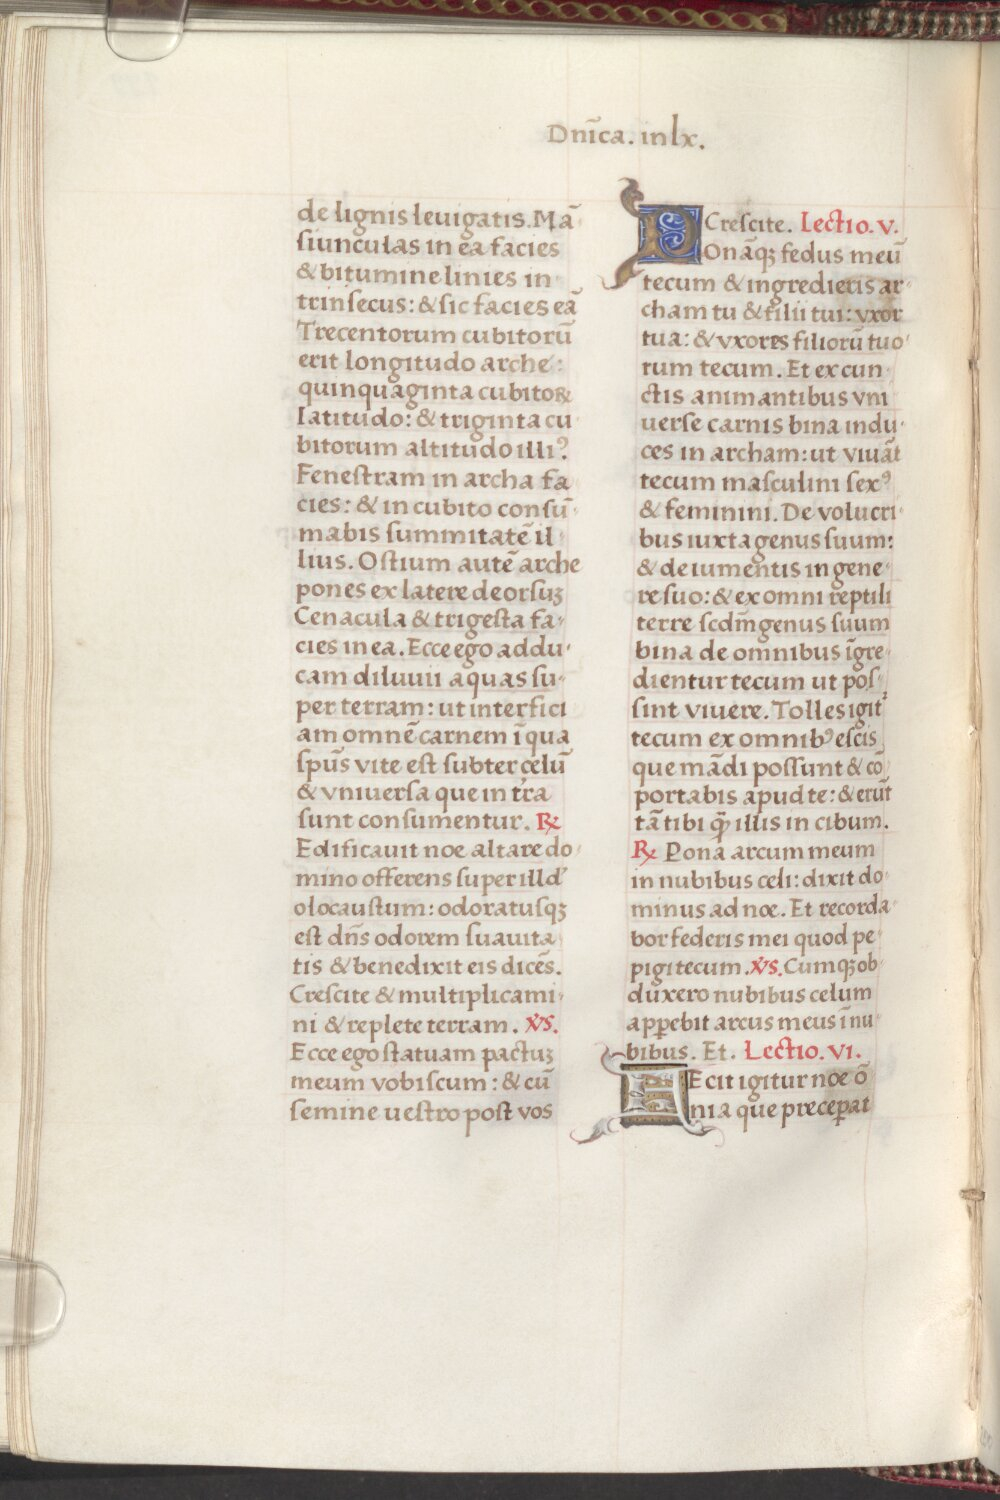 Dnīca. in lx.
de lignis leuigatis. Mā
siunculas in ea facies
& bitumine linies in
trinsecus: & sic facies eā
Trecentorum cubitorū
erit longitudo arche:
quinquaginta cubitoꝝ
latitudo: & triginta cu
bitorum altitudo illiꝰ.
Fenestram in archa fa
cies: & in cubito consū
mabis summitatē il
lius. Ostium autē arche
pones ex latere deorsuꝫ
Cenacula & trigesta fa
cies in ea. Ecce ego addu
cam diluuii aquas su
per terram: ut interfici
am omnē carnem ī qua
spūs vite est subter celū
& vniuersa que in tr̄a
sunt consumentur. ℟
Edificauit noe altare do
mino offerens super illd̓
olocaustum: odoratusqꝫ
est dn̄s odorem suauita
tis & benedixit eis dicēs.
Crescite & multiplicami
ni & replete terram. V̓S.
Ecce ego statuam pactuꝫ
meum vobiscum: & cū
semine uestro post vos
Crescite. Lectio. v.
Ponāqꝫ fedus meū
tecum & ingredieris ar
cham tu & filii tui: vxor
tua: & vxores filiorū tuo
rum tecum. Et ex cun
ctis animantibus vni
uerse carnis bina indu
ces in archam: ut viuāt
tecum masculini sexꝰ
& feminini. De volucri
bus iuxta genus suum:
& de iumentis in gene
re suo: & ex omni reptili
terre scdm̄ genus suum
bina de omnibus īgre
dientur tecum ut pos
sint viuere. Tolles igit᷑
tecum ex omnibꝰ escis
que mādi possunt & cō
portabis apud te: & erūt
tā tibi ꝙ̄ illis in cibum.
℟ Ponā arcum meum
in nubibus celi: dixit do
minus ad noe. Et recorda
bor federis mei quod pe
pigi tecum. V̓S. Cumqꝫ ob
duxero nubibus celum
apꝑebit arcus meus ī nu
bibus. Et. Lectio. VI.
Fecit igitur noe ō
nia que preceꝑat